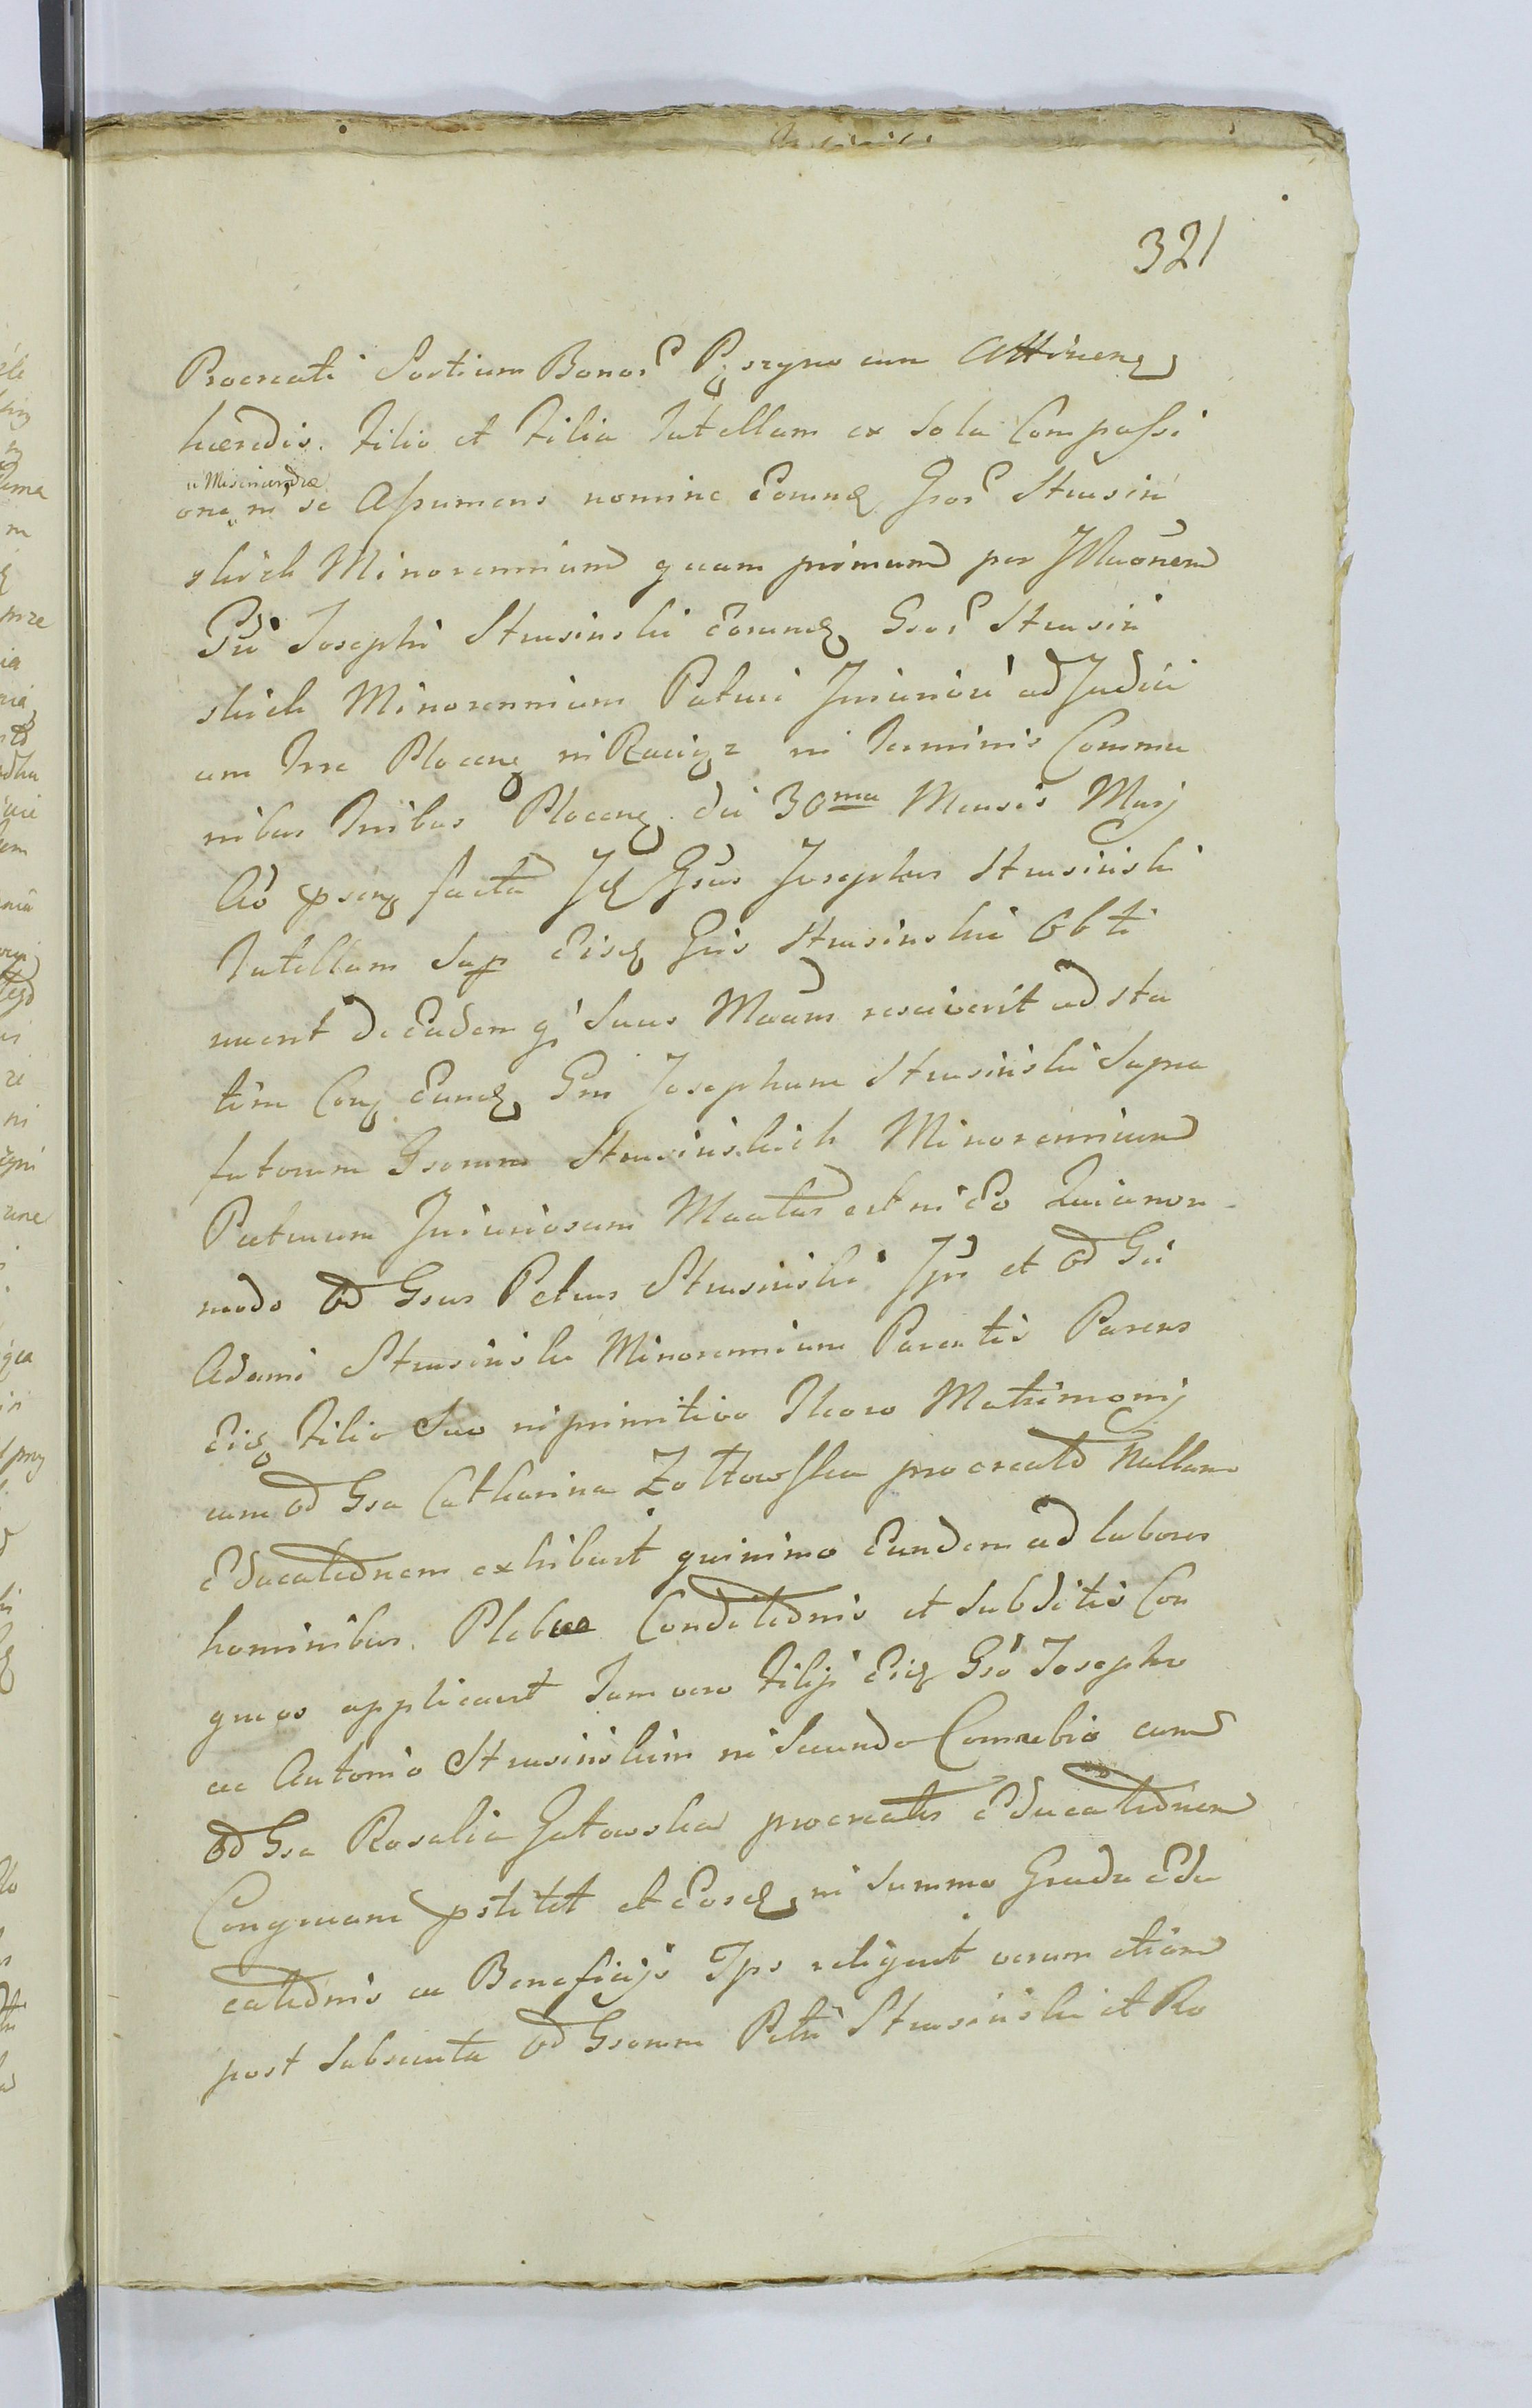 321
Procreati Sortium Bonor cum Attinen
hæredis. Filio et Filia Tutellam ex sola Compassi
a Misericordia
one in se Assumens nomine Eorund Gsor Strusin
skich Minorennium quam primum per
Gsi Josephi Strusinski Eorund Gsor Strusin
skich Minorennium Patrui Injuriosi ad Judici
um Trre Plocen in Raciąz in Terminis Commu
nibus Tribus Plocen. die 30ma Mensis Maij
Ao psen facta Id Gsus Josephus Strusinski
Tutellam Sup Eisd Gsis Strusinskie Obti
nuerit de Eadem resciverit ad sta
tim Con Eund Gm Josephum Strusinski Supra
fatorum Gsorum Strusinskich Minorennium
Patruum Injuriosum est in Eo Quia non
modo Od Gsus Petrus Strusinski et Od Gsi
Adami Strusinski Minorennium Parentis Parens
Eid Filio Suo in primitivo Thoro Matrimonij
cum Od Gsa Catharina Zołtowska procreato Nullam
Educationem exhibuit quinimo Eundem ad labores
hominibus. Conditionis et Subditis Con
gruos applicavit Tum vero Filijs Eisd Gso Josepho
ac Antonio Strusinskim in Secundo Connubio cum
Od Gsa Rosalia Gutowska procreatis Educationem
Congruam pstitit et Eosd in Summo Gradu Edu
cationis ac Beneficijs Ips religuit verum etiam
post Subsecuta Od Gsorum Petri Strusinski et Ro